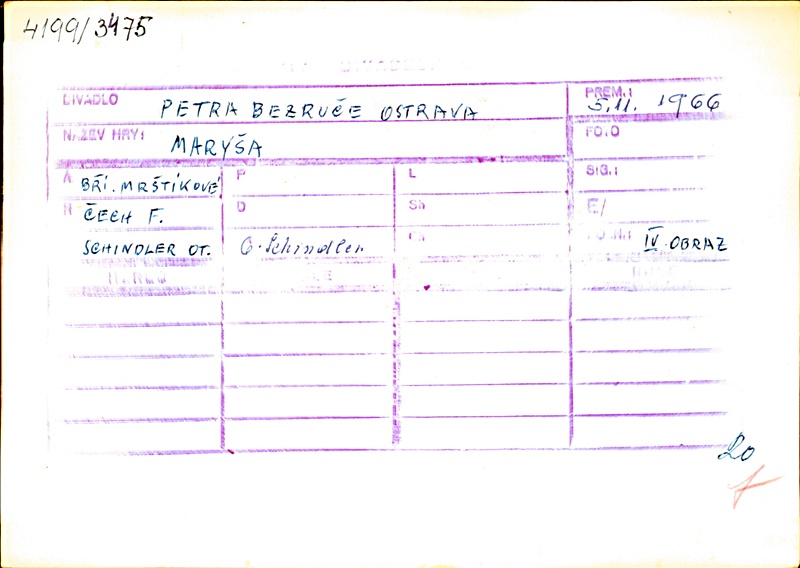 4199/3475
DIVADLO PETRA BEZRUČE OSTRAVA PREM.: 5.11. 1966
NÁZEV HRY: MARYŠA FOTO
A BŘÍ. MRŠTÍKOVÉ P L SIG.:
R ČECH F. D Sh E/
SCHINDLER OT. O. Schindler IV. OBRAZ
Lo